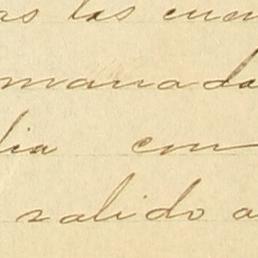 as las cuen
manada
dia con
salido a